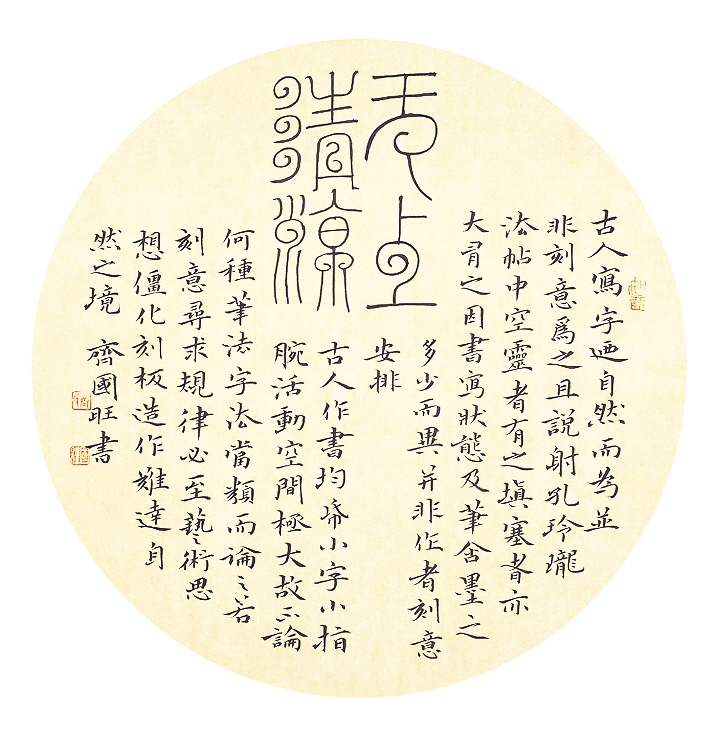 无上
清涼
古人寫字迺自然而為並
非刻意爲之且說射孔玲瓏
法帖中空靈者有之填塞者亦
大有之因書寫狀態及筆含墨之
多少而異并非作者刻意
安排
古人作書均小字小指
腕活動空間極大故不論
何種筆法字法當類而論之若
刻意尋求規律必至藝術思
想僵化刻板造作難達自
然之境 齊國旺書